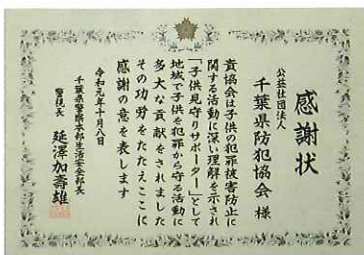 感謝状
公益社団法人
千葉県防犯協会 様
貴協会は子供の犯罪被害防止に
関する活動に深い理解を示され
「子供見守りサポーター」として
地域で子供を犯罪から守る活動に
多大な貢献をされました
その功労をたたえここに
感謝の意を表します
令和元年十月八日
千葉県警察本部生活安全部長
警視長 延澤加壽雄